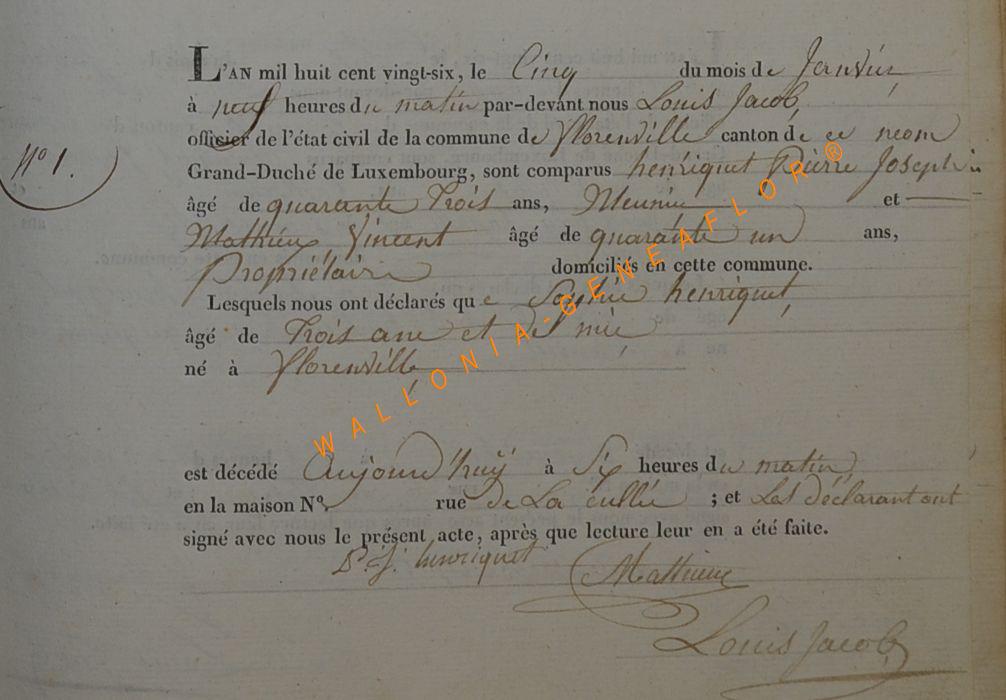 L'AN mil huit cent vingt-six, le Cinq du mois de Janvier
à neuf heures du matin par-devant nous Louis Jacob,
officier de l'état civil de la commune de Florenville canton de ce nom
N° 1.
Grand-Duché de Luxembourg, sont comparus henriquet Pierre Joseph
âgé de quarante Trois ans, Meunier et
Mathieu Vincent âgé de quarante un ans,
Propriétaire domiciliés en cette commune.
Lesquels nous ont déclarés que Sophie henriquet,
âgé de Trois ans et demie
né à Florenville
est décédé aujourd'huy à Six heures du matin
en la maison N° rue de La ; et Les déclarant ont
signé avec nous le présent acte, après que lecture leur en a été faite.
P. J. henriquet Mathieu
Louis Jacob
WALLONIA-GENEAFLOR®